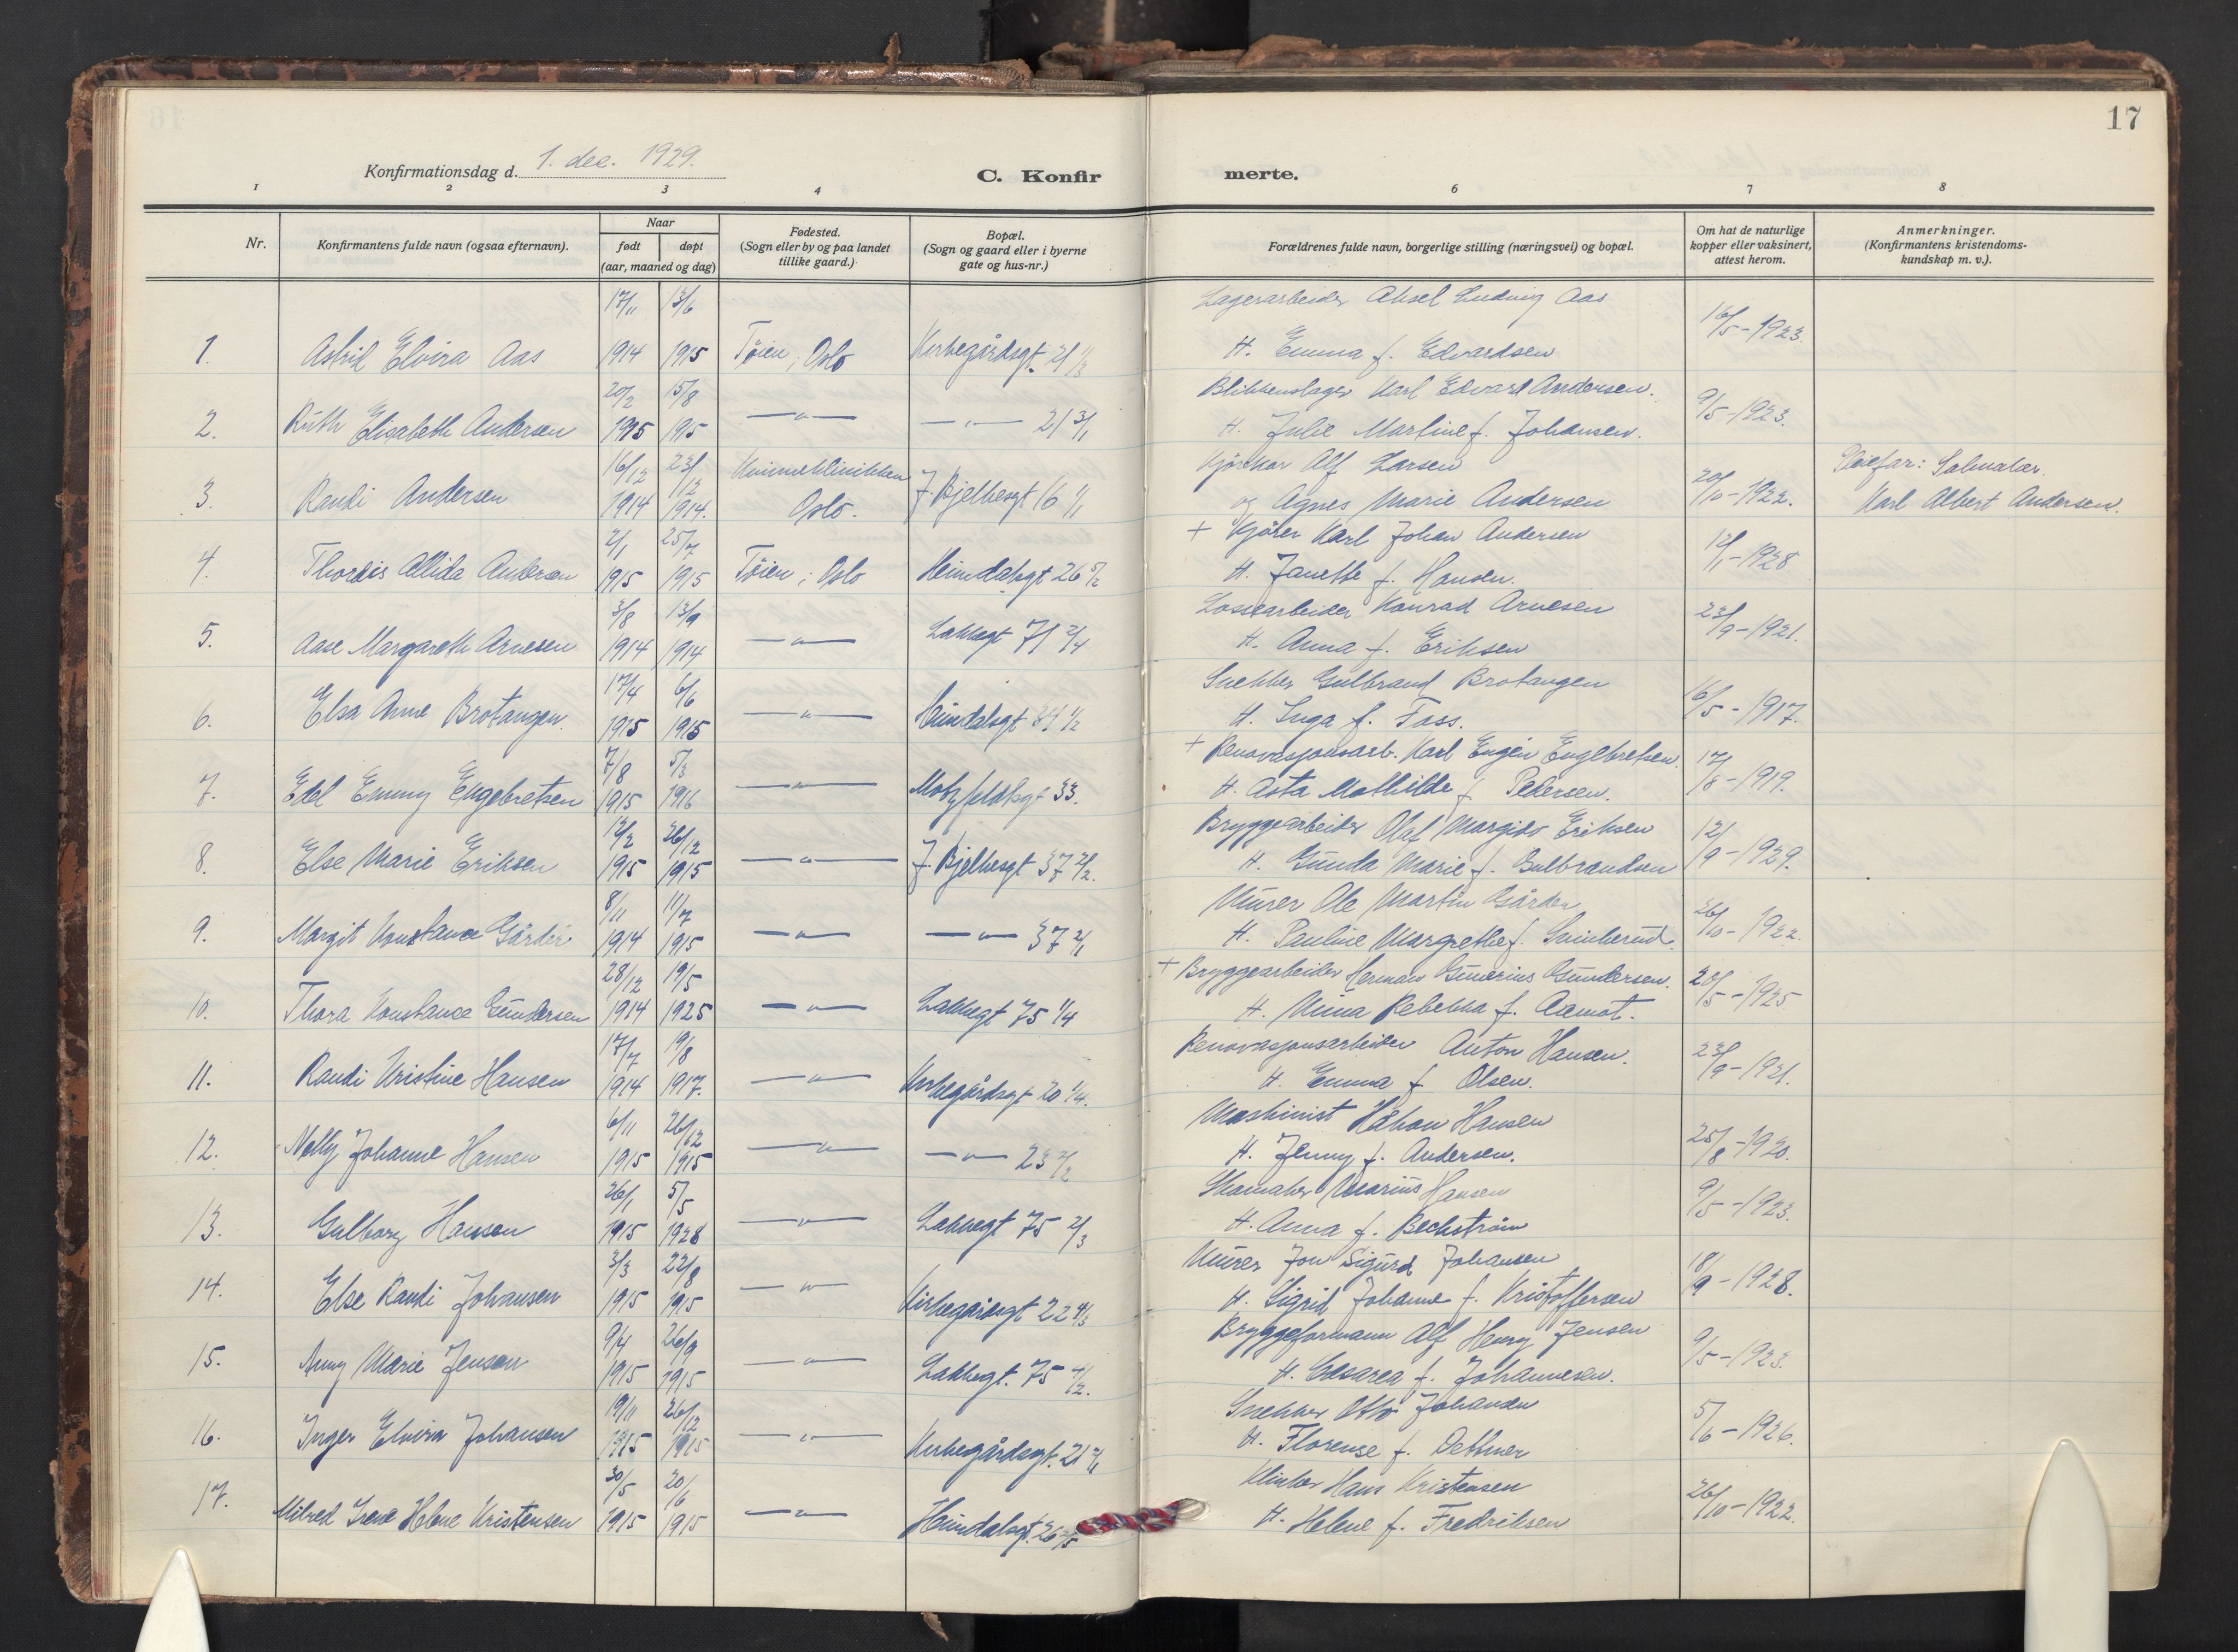 17
Konfirmationsdag d. 1. dec. 1929.
C. Konfirmerte.
1 2 3 4 6 7 8
Nr.
Konfirmantens fulde navn (ogsaa efternavn).
Naar
født døpt
(aar, maaned og dag)
Fødested.
(Sogn eller by og paa landet
tillike gaard.)
Bopæl.
(Sogn og gaard eller i byerne
gate og hus-nr.)
Forældrenes fulde navn, borgerlige stilling (næringsvei) og bopæl.
Om hat de naturlige
kopper eller vaksinert,
attest herom.
Anmerkninger.
(Konfirmantens kristendoms-
kundskap m. v.).
17/11 13/6 Lagerarbeider Aksel Ludvig Aas
1. Astrid Elvira Aas 1914 1915 Tøien, Oslo Kirkegårdsgt. 21 1/3 H. Emma f. Edvardsen 16/5-1923.
20/2 15/8 Blikkenslager Karl Edvard Andersen.
2. Ruth Elisabeth Andersen 1915 1915 —„— —„— 21 3/1 H. Julie Martine f. Johansen. 9/5-1923.
16/12 23/12 Kvinneklinikken Kjørekar Alf Larsen Pleiefar: Salmaker.
3. Randi Andersen 1914 1914. Oslo. J. Bjelkesgt 16 1/1 og Agnes Marie Andersen 20/10-1922. Karl Albert Andersen.
2/1 25/7 + Kjører Karl Johan Andersen
4. Thordis Allida Andersen 1915 1915 Tøien, Oslo Heimdalsgt 26 H. Janette f. Hansen. 12/1-1928
3/8 13/9 Lossearbeider Konrad Arnesen
5. Aase Margareth Arnesen 1914 1914 —„— Lakkegt 71 2/4 H. Anna f. Eriksen 23/9-1921.
17/4 6/6 Snekker Gulbrand Brotangen
6. Elsa Anne Brotangen. 1915 1915 —„— Heimdalsgt 1/2 H. Inga f. Foss. 16/5-1917.
7/8 5/3 + Renovasjonsarb. Karl Eugen Engebretsen.
7. Edel Emmy Engebretsen 1915 1916 —„— Motzfeldtsgt 33. H. Asta Mathilde f. Pedersen. 17/8-1919.
12/2 26/12 Bryggearbeider Olaf Margido Eriksen
8. Else Marie Eriksen 1915 1915 —„— J. Bjelkesgt 37 2/2. H. Gunda Marie f. Gulbrandsen 12/9-1929.
8/11 11/7 Murer Ole Martin Gårder
9. Margit Konstance Gårder 1914 1915 —„— —„— 37 2/1 H. Pauline Margrethe f. 26/10-1922.
28/12 19/5 + Bryggearbeider Herman Gunerius Gundersen.
10. Thora Konstance Gundersen 1914 1925 —„— Lakkegt 75 1/4 H. Mina Rebekka f. Aamot. 20/5-1925
17/7 19/8 Renovasjonsarbeider Anton Hansen.
11. Randi Kristine Hansen 1914 1917. —„— Kirkegårdsgt 20 1/4. H. Emma f. Olsen. 23/9-1921.
6/11 26/12 Maskinist Håkon Hansen
12. Nelly Johanne Hansen 1915 1915 —„— —„— 23 2/2 H. Jenny f. Andersen. 25/8-1920.
26/1 5/5 Skomaker Marius Hansen
13. Gulborg Hansen 1915 1928 —„— Lakkegt 75 2/3 H. Anna f. Beckstrøm 9/5-1923.
3/3 22/8 Murer Jon Sigurd Johansen
14. Else Randi Johansen 1915 1915 —„— Kirkegårdsgt 22 4/3 H. Sigrid Johanne f. Kristoffersen 18/9-1928.
9/4 26/9 Bryggeformann Alf Henry Jensen
15. Anny Marie Jensen 1915 1915 —„— Lakkegt. 75 4/2. H. Cæsarea f. Johannesen. 9/5-1923.
19/11 26/12 Snekker Otto Johansen
16. Inger Elvira Johansen 1915 1915 —„— Kirkegårdsgt. 21 H. Florense f. Dettmer 5/6-1926.
30/5 20/6 Klinker Hans Kristensen
17. Milred Irene Helene Kristensen 1915 1915 —„— Heimdalsgt. 26 H. Helene f. Fredriksen 26/10-1922.